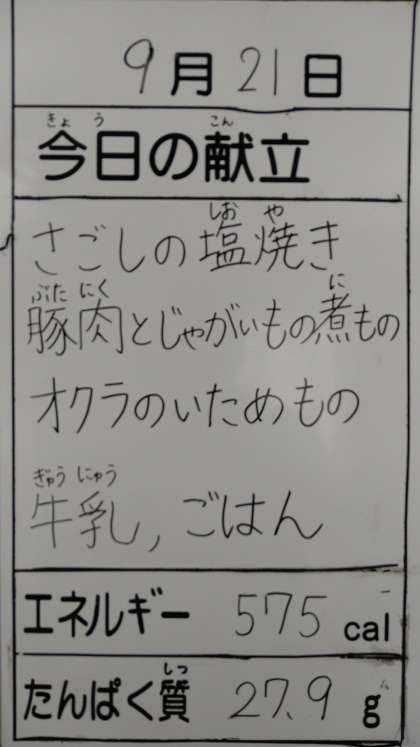 9月21日
きょう こん
今日の献立
しお や
さごしの塩焼き
ぶた にく に
豚肉とじゃがいもの煮もの
オクラのいためもの
ぎゅう にゅう
牛乳, ごはん
エネルギー 575 cal
しつ
たんぱく質 27.9 g